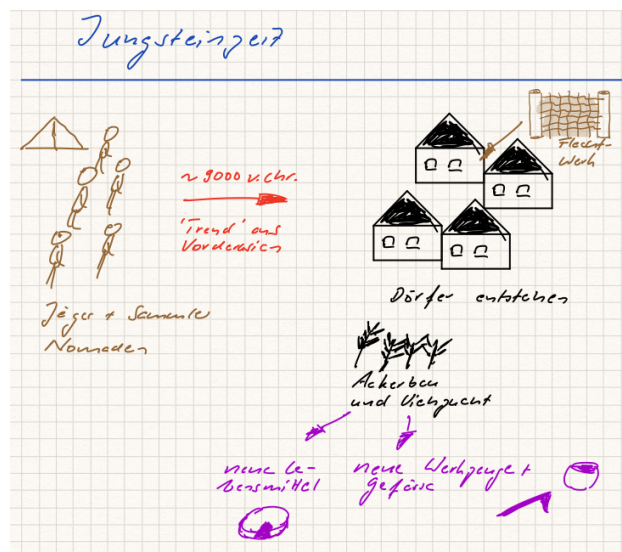 Jungsteinzeit
~ 9000 v. Chr.
'Trend' aus
Vorderasien
Flecht-
werk
Jäger + Sammler
Nomaden
Dörfer entstehen
Ackerbau
und Viehzucht
neue Le-
bensmittel
neue Werkzeuge +
Gefässe